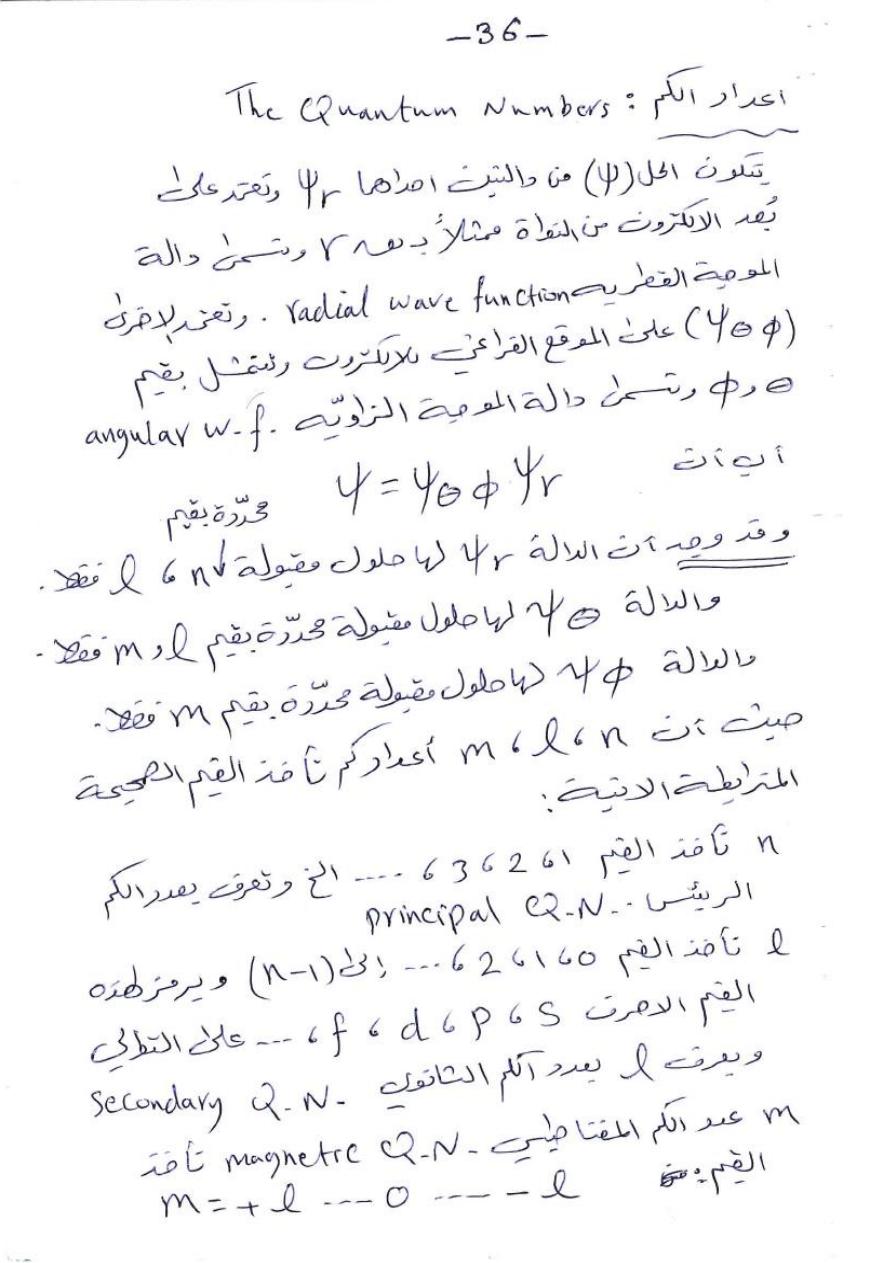 -36-
اعداد الكم : The Quantum Numbers
يتكون الحل (ψ) من دالتين احداها ψr وتعتمد على
بُعد الالكترون من النواة ممثلاً بـ r وتسمى دالة
الموجة القطرية radial wave function . وتعتمد الاخرى
(ψθφ) على الموقع الفراغي للالكترون وتتمثل بقيم
θ و φ وتسمى دالة الموجة الزاويّة angular w.f.
أي أن ψ = ψθφ ψr
محدّدة بقيم
وقد وجد أن الدالة ψr لها حلول مقبولة n ، l فقط .
والدالة ψθ لها حلول مقبولة محدّدة بقيم l و m فقط .
والدالة ψφ لها حلول مقبولة محدّدة بقيم m فقط .
حيث أن n ، l ، m أعداد كم تأخذ القيم الصحيحة
المترابطة الاتية :
n تأخذ القيم 1 ، 2 ، 3 ، .... الخ وتعرف بعدد الكم
الرئيس . principal Q.N.
l تأخذ القيم 0 ، 1 ، 2 ، ... إلى (n-1) ويرمز لهذه
القيم الاحرف s ، p ، d ، f ، ... على التوالي
ويعرف l بعدد الكم الثانوي secondary Q.N.
m عدد الكم المغناطيسي magnetic Q.N. تأخذ
القيم :
m = + l --- 0 ---- - l